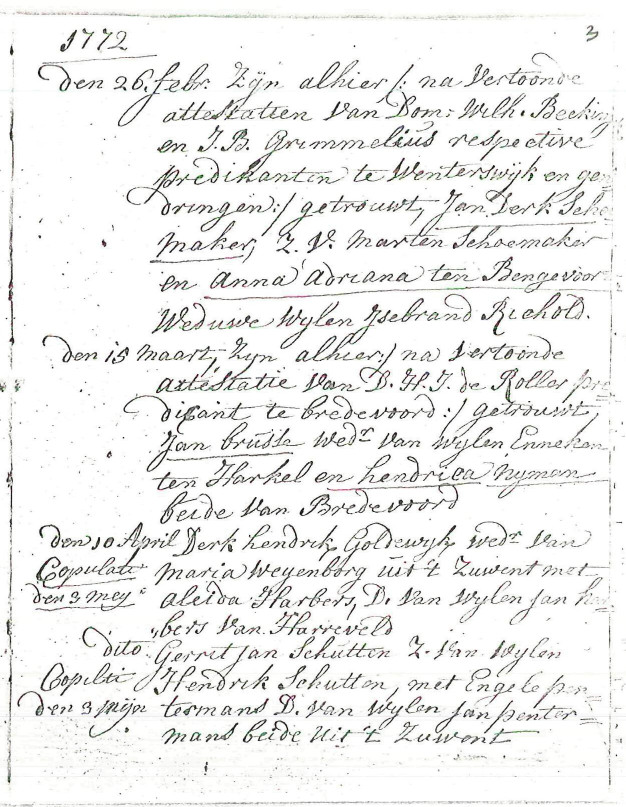 1772
3
den 26. febr. Zijn alhier /: na Vertoonde
attestatien Van Dom: Wilh. Beeking
en J. B. Grimmelius respective
predikanten te Wenterswyk en gen=
dringen :/ getrouwt, Jan Derk Scho=
maker, Z. V. Marten Schoemaker
en Anna Adriana ten Bengevoor
Weduwe Wylen Jsebrand Richold.
den 15 maart, Zyn alhier :/ na vertoonde
attestatie Van D. H. J. de Roller pre=
dicant te bredevoord :/ getrouwt,
Jan brusse wedr. van wylen Enneken
ten Harkel en hendrica Nyman
beide Van Bredevoord
den 10 April Derk hendrik Goldewyk wedr Van
Copulati maria Weyenborg uit 't Zuwent met
den 3 mey aleida Harbers, D. Van Wylen jan har
bers Van Harreveld
dito Gerrit jan Schutten Z. Van Wylen
Copilti Hendrik Schutten, met Engele pen=
den 3 mey termans D. van wylen jan penter=
mans beide uit 't Zuwent